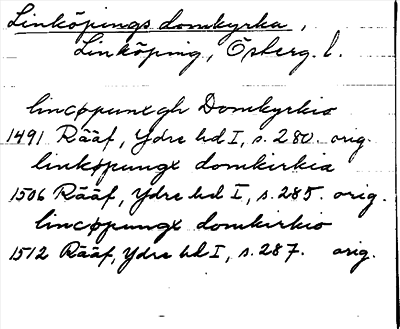 Linköpings domkyrka,
Linköping, Östergl.
lincøpunxgh Domkyrkio
1491 Rääf, Ydre hd I, s. 280. orig.
linkøpungx domkirkia
1506 Rääf, Ydre hd I, s. 285. orig.
lincøpungx domkirkio
1512 Rääf, Ydre hd I, s. 287. orig.